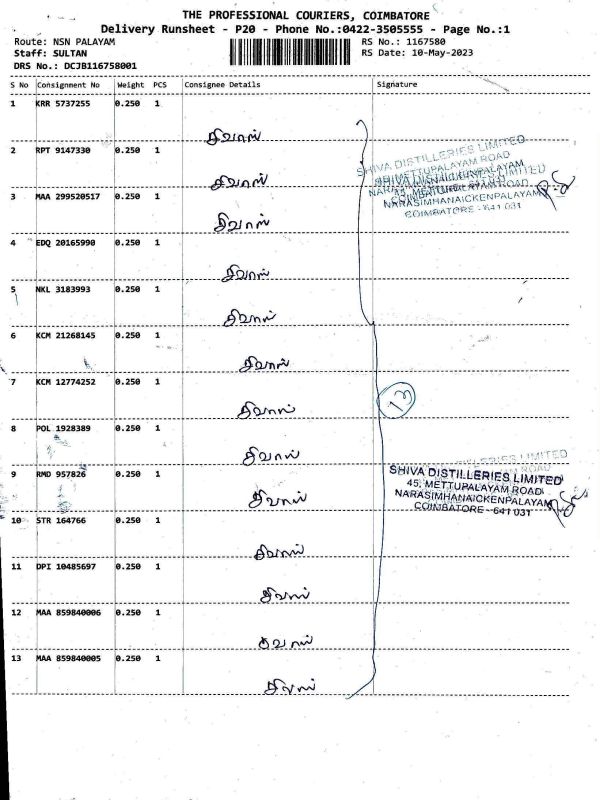 THE PROFESSIONAL COURIERS, COIMBATORE
Delivery Runsheet - P20 - Phone No.:0422-3505555 - Page No.:1
Route: NSN PALAYAM
Staff: SULTAN
DRS No.: DCJB116758001
RS No.: 1167580
RS Date: 10-May-2023
S No Consignment No Weight PCS Consignee Details Signature
1 KRR 5737255 0.250 1
சிவாஸ்
2 RPT 9147330 0.250 1
சிவாஸ்
3 MAA 299520517 0.250 1
சிவாஸ்
4 EDQ 20165990 0.250 1
சிவாஸ்
5 NKL 3183993 0.250 1
சிவாஸ்
6 KCM 21268145 0.250 1
சிவாஸ்
7 KCM 12774252 0.250 1
சிவாஸ்
8 POL 1928389 0.250 1
சிவாஸ்
9 RMD 957826 0.250 1
சிவாஸ்
10 STR 164766 0.250 1
சிவாஸ்
11 DPI 10485697 0.250 1
சிவாஸ்
12 MAA 859840006 0.250 1
சிவாஸ்
13 MAA 859840005 0.250 1
சிவாஸ்
SHIVA DISTILLERIES LIMITED
45, METTUPALAYAM ROAD
NARASIMHANAICKENPALAYAM
COIMBATORE - 641 031
13
SHIVA DISTILLERIES LIMITED
45, METTUPALAYAM ROAD
NARASIMHANAICKENPALAYAM
COIMBATORE - 641 031